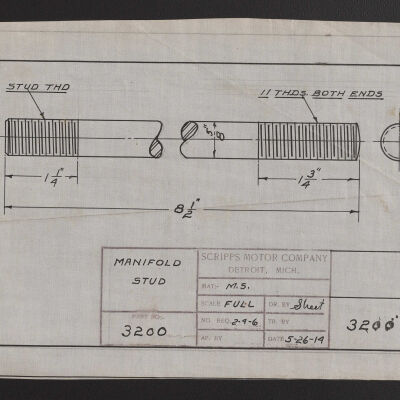 STUD THD
11 THDS. BOTH ENDS
5/8"
1 1/4"
1 3/4"
8 1/2"
MANIFOLD
STUD
PART NO.
3200
SCRIPPS MOTOR COMPANY
DETROIT, MICH.
MAT:- M.S.
SCALE FULL DR. BY
NO. REQ. 2-4-6 TR. BY
AP. BY DATE 5-26-14
3200